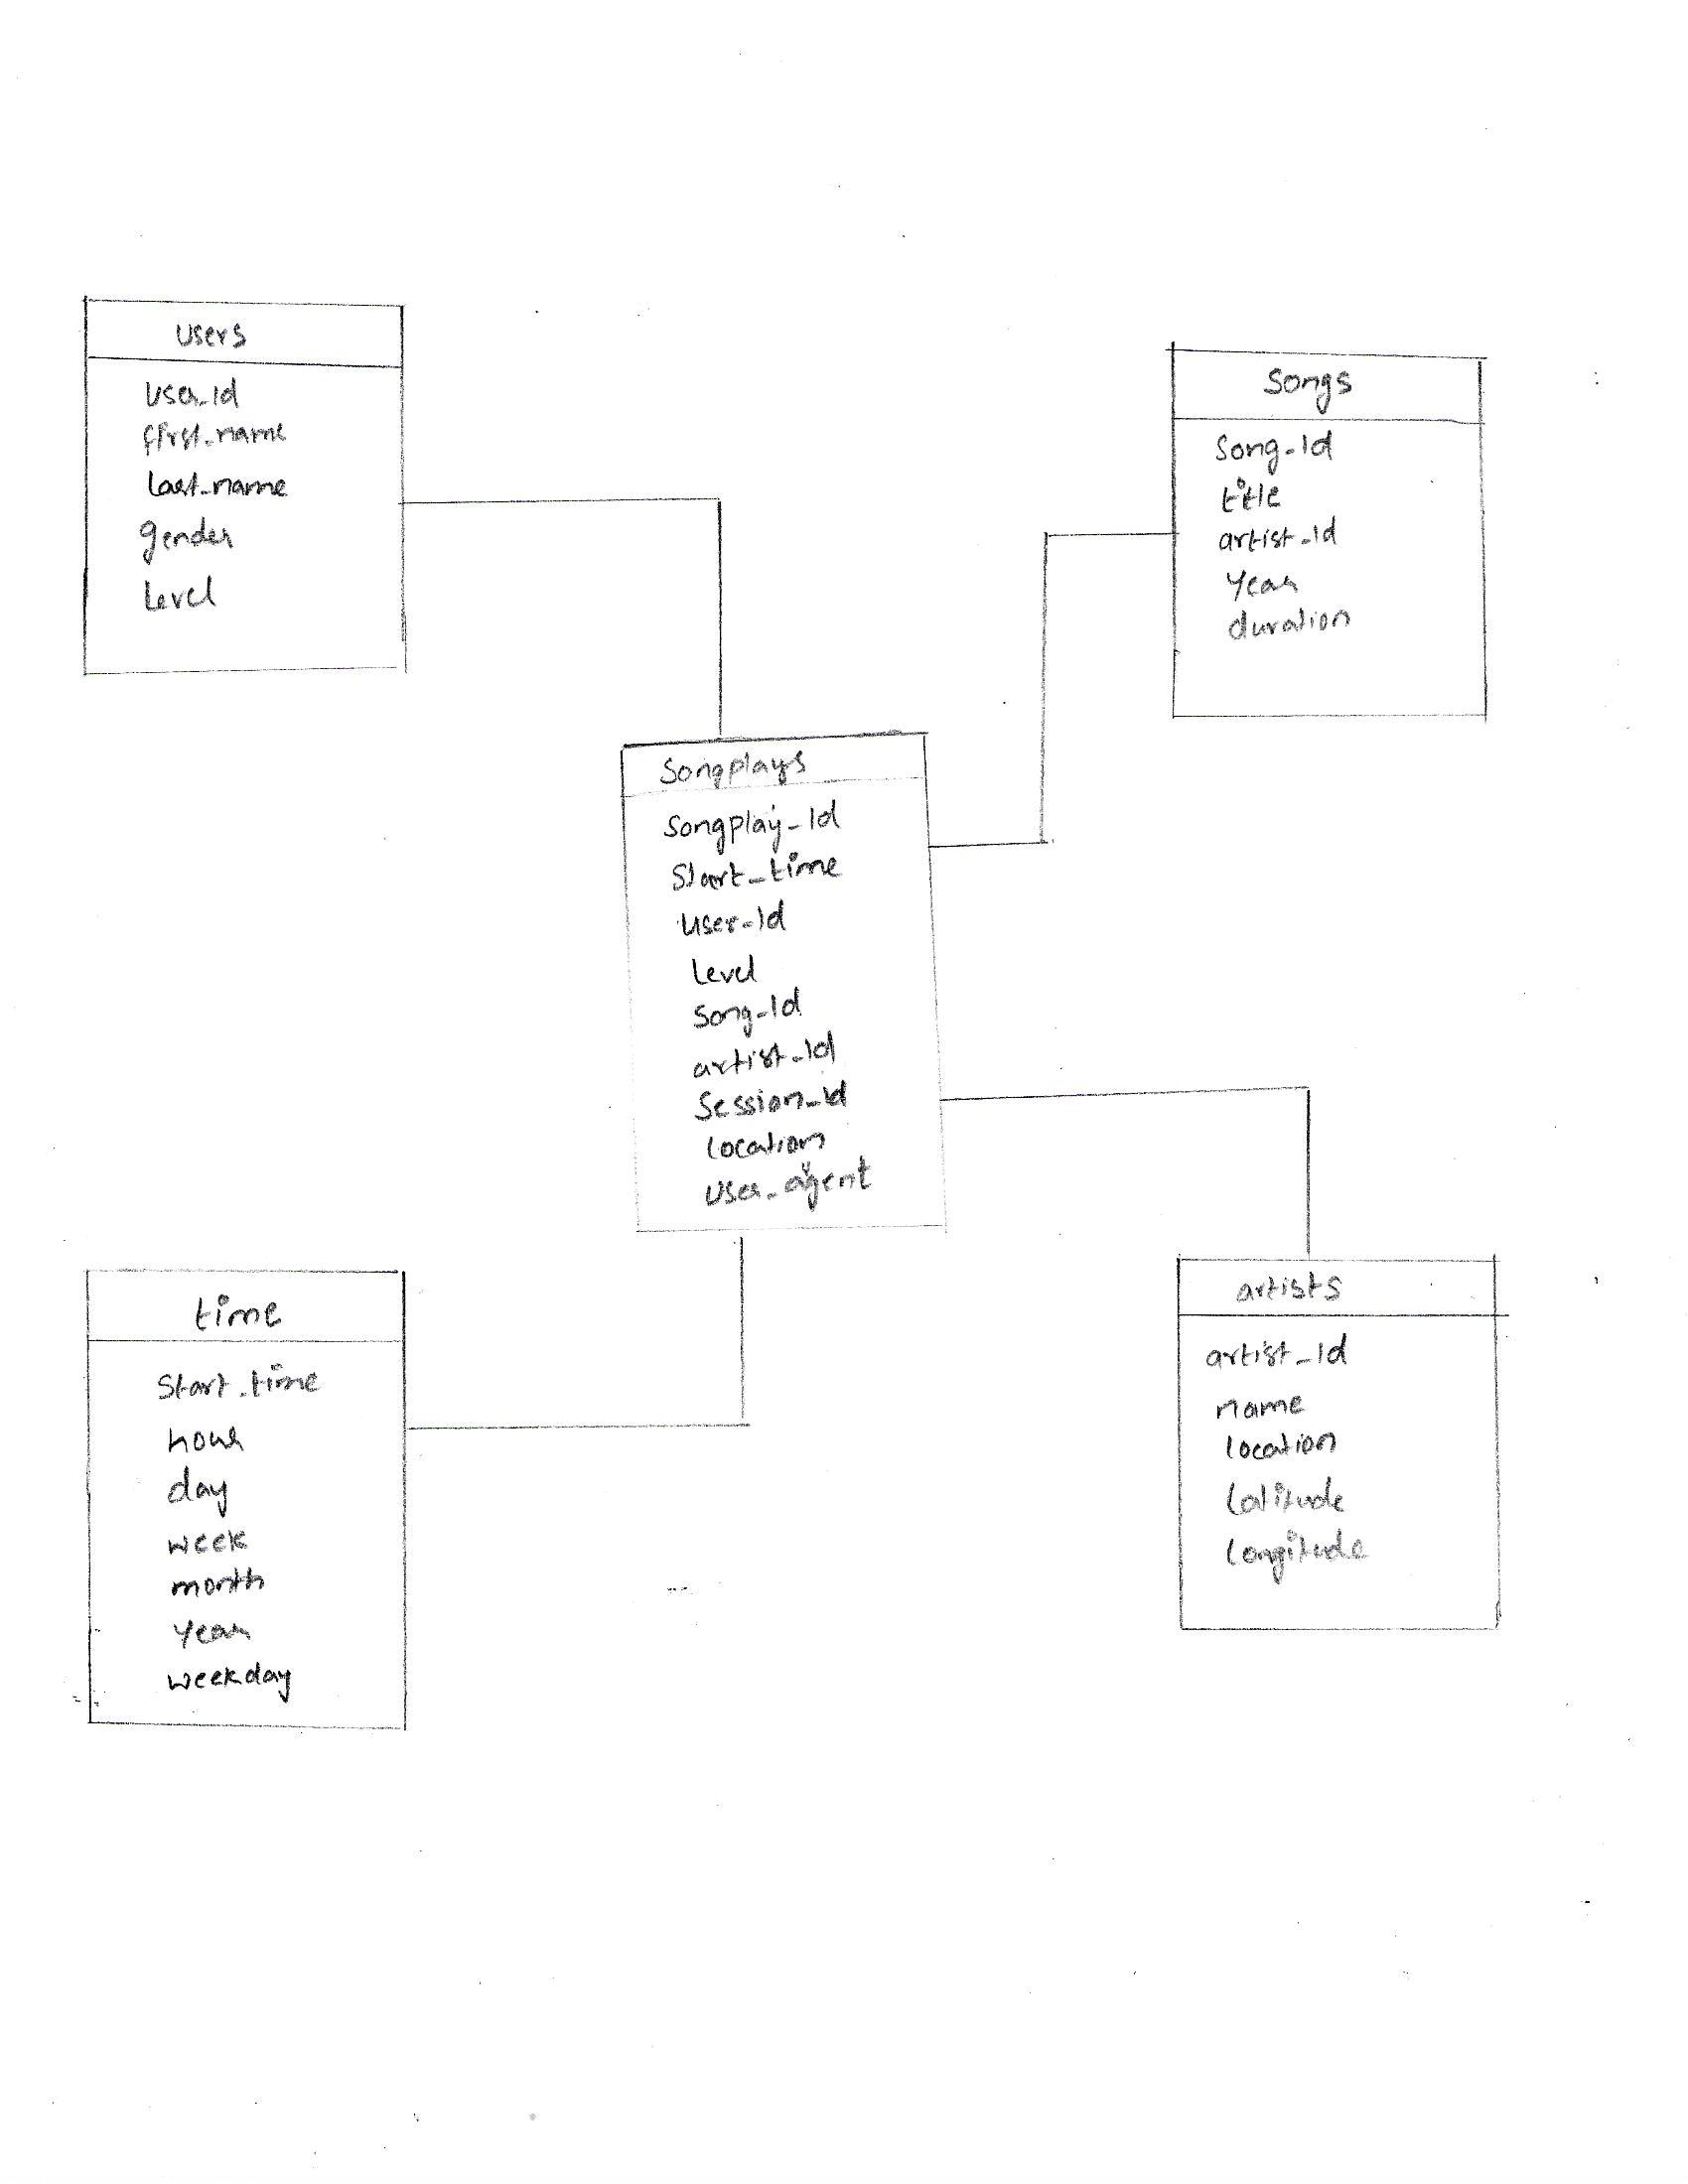 users
user_id
first_name
last_name
gender
level
songs
song_id
title
artist_id
year
duration
songplays
songplay_id
start_time
user_id
level
song_id
artist_id
session_id
location
user_agent
time
start_time
hour
day
week
month
year
weekday
artists
artist_id
name
location
latitude
longitude